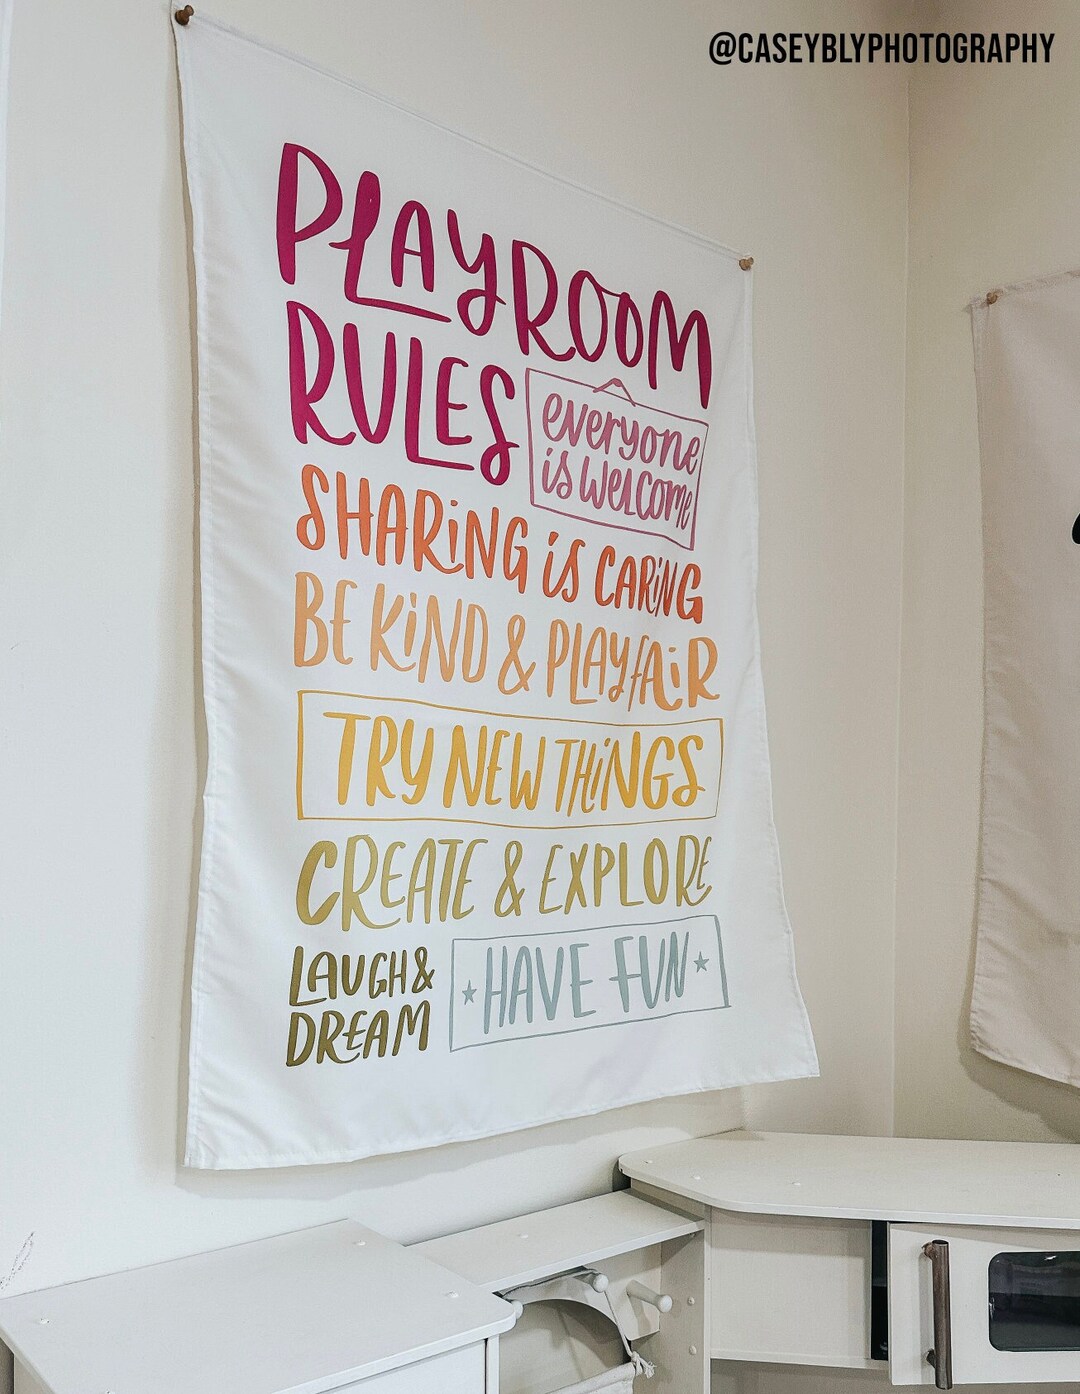 @CASEYBLYPHOTOGRAPHY
PLAYROOM
RULES
everyone
is WELCOME
SHARiNG iS CARiNG
BE KiND & PLAY FAiR
TRY NEW THiNGS
CREATE & EXPLORE
LAUGH &
DREAM
HAVE FUN